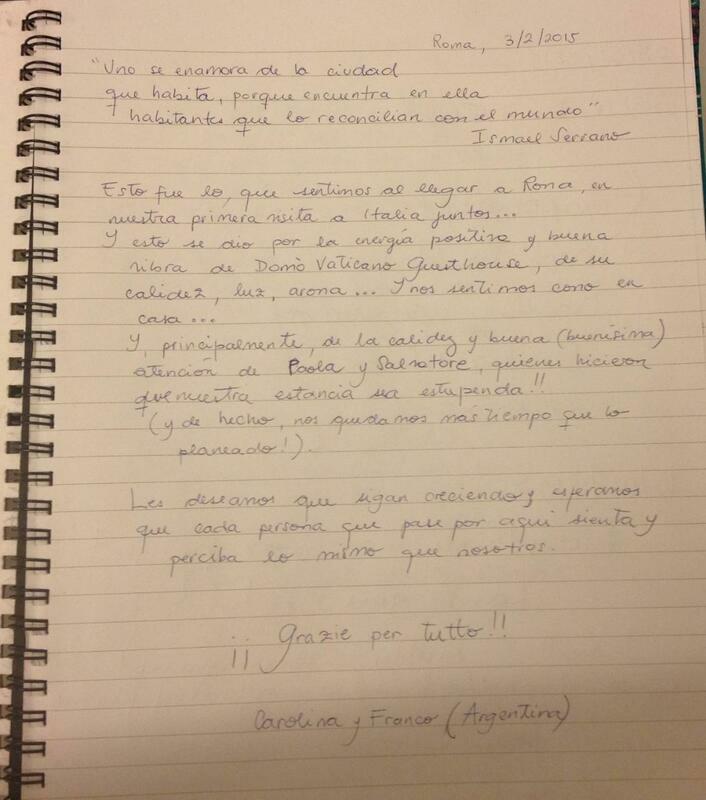 Roma, 3/2/2015
"Uno se enamora de la ciudad
que habita, porque encuentra en ella
habitantes que lo reconcilian con el mundo"
Ismael Serrano
Esto fue lo, que sentimos al llegar a Roma, en
nuestra primera visita a Italia juntos...
Y esto se dio por la energía positiva y buena
vibra de Domò Vaticano Guesthouse, de su
calidez, luz, aroma... Y nos sentimos como en
casa...
Y, principalmente, de la calidez y buena (buenísima)
atención de Paola y Salvatore, quienes hicieron
que nuestra estancia sea estupenda!!
(y de hecho, nos quedamos mas tiempo que lo
planeado!).
Les deseamos que sigan creciendo y esperamos
que cada persona que pase por aqui sienta y
perciba lo mismo que nosotros.
¡¡ Grazie per tutto!!
Carolina y Franco (Argentina)